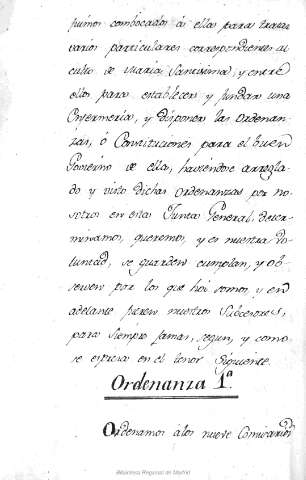 fuimos combocados á ellas para tratar
varios particulares correspondientes al
culto de Maria Santisima, y entre
ellos para establecer, y fundar una
Enfermeria, y disponer las Ordenan-
zas, ó Constituciones para el buen
Govierno de ella, haviendose arregla-
do y visto dichas Ordenanzas por no-
sotros en esta Junta General, deter-
minamos, queremos, y es nuestra vo-
luntad, se guarden cumplan, y ob-
serven por los que hoi somos, y en
adelante fueren nuestros Subcesores,
para siempre jamas, segun, y como
se expresa en el tenor Siguiente.
Ordenanza 1ª.
Ordenamos á los nueve Comisarios
Biblioteca Regional de Madrid